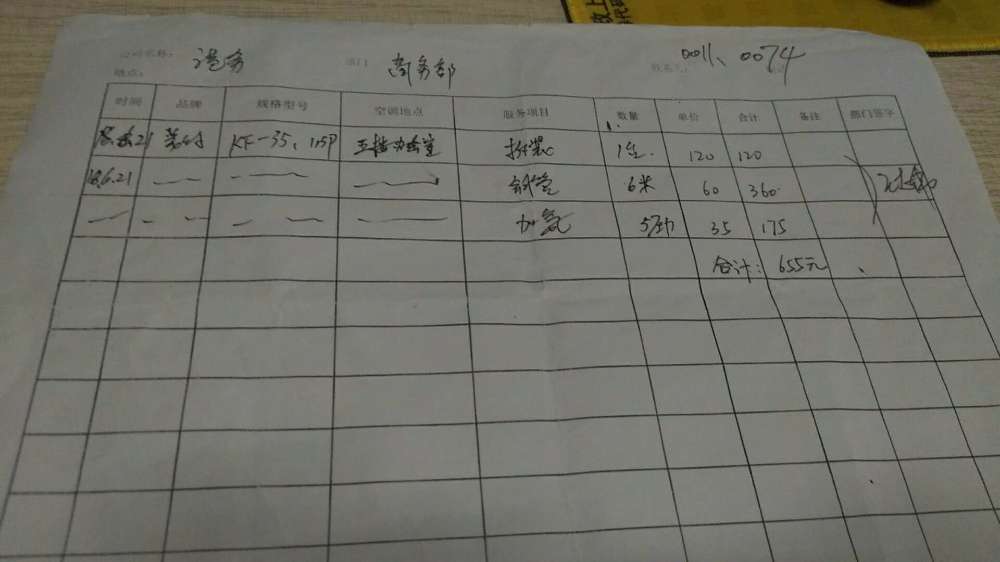 公司名称: 港务 部门 商务部 0011、0074
地点:
时间 品牌 规格型号 空调地点 服务项目 数量 单价 合计 备注 部门签字
KF-35、1.5P 三楼办公室 拆装 1台. 120 120
18.6.21 铜管 6米 60 360
加氟 5斤 35 175
合计: 655元